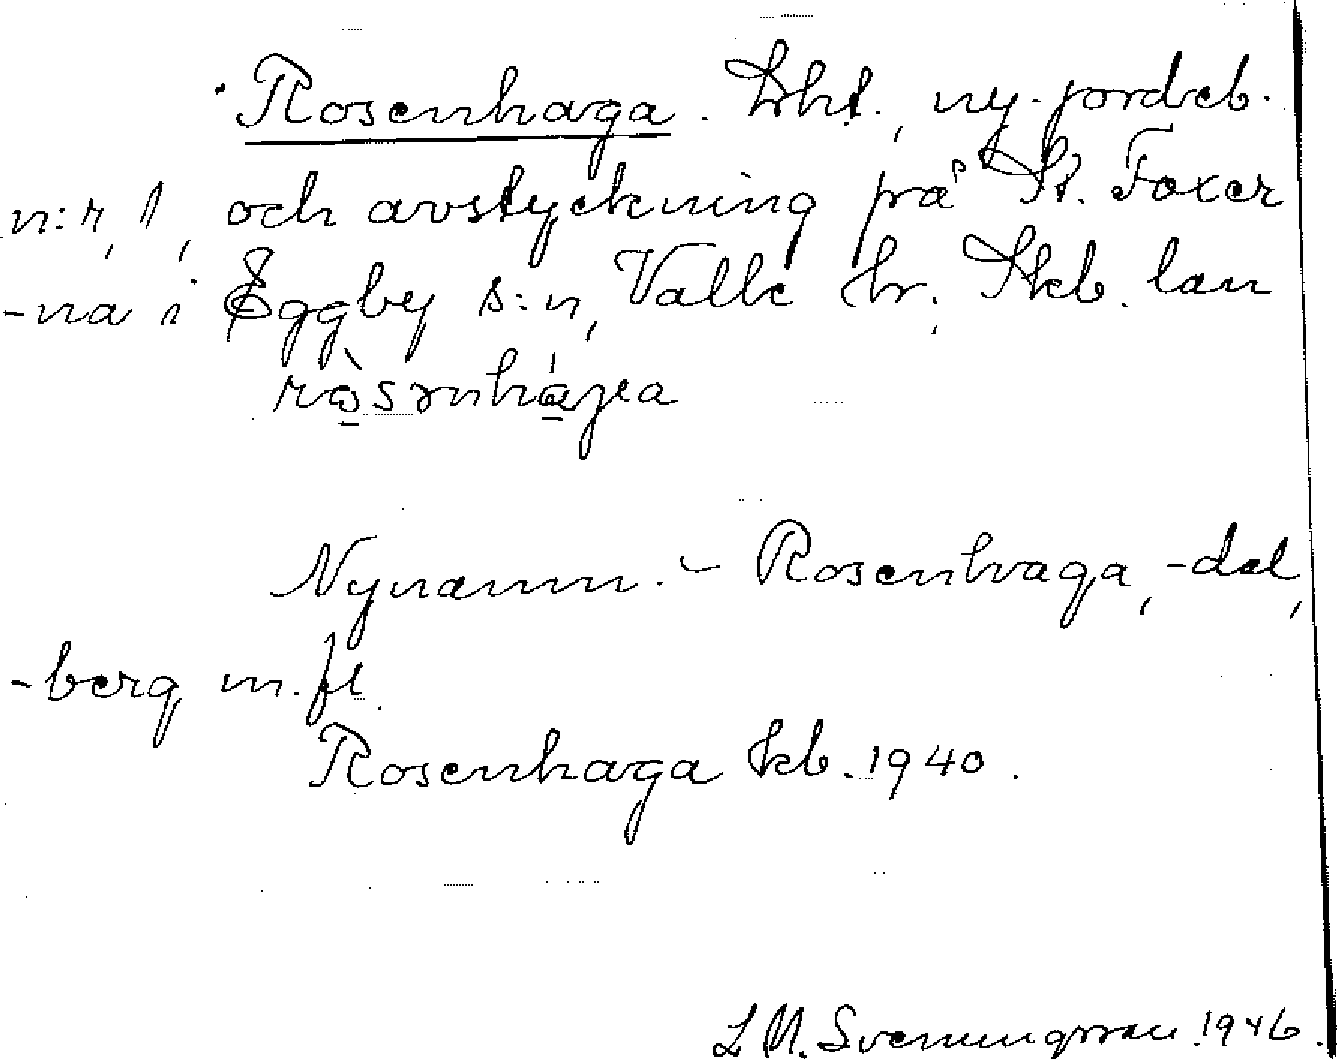 Rosenhaga. Lht., ny. jordeb.
n:r, 1, och avstyckning på St. Foxer
-na i Eggby s:n, Valle hr. Skb. län
Nynamn. - Rosenhaga, -dal,
-berg m.fl.
Rosenhaga kb. 1940.
L M. Svenungsson. 1946.